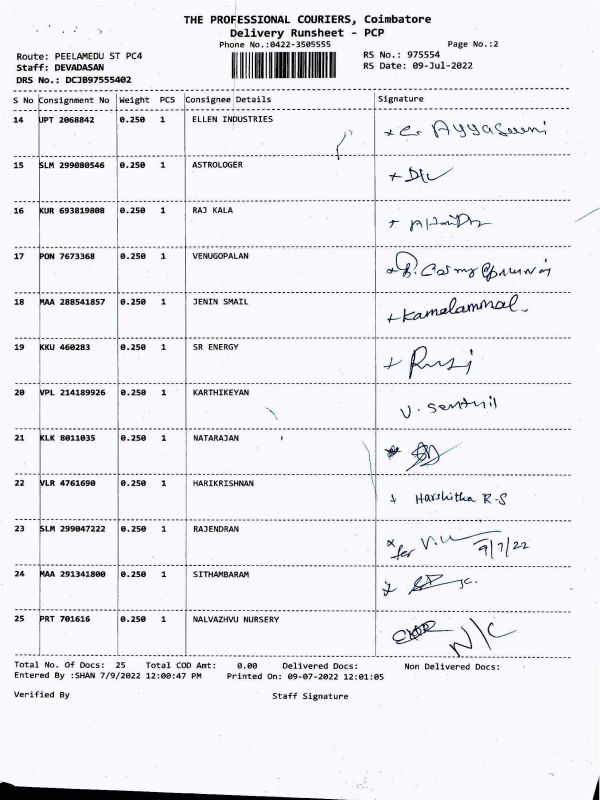 THE PROFESSIONAL COURIERS, Coimbatore
Delivery Runsheet - PCP
Phone No.:0422-3505555 Page No.:2
Route: PEELAMEDU ST PC4 RS No.: 975554
Staff: DEVADASAN RS Date: 09-Jul-2022
DRS No.: DCJB97555402
S No Consignment No Weight PCS Consignee Details Signature
14 UPT 2068842 0.250 1 ELLEN INDUSTRIES
15 SLM 299080546 0.250 1 ASTROLOGER
16 KUR 693819808 0.250 1 RAJ KALA
17 PON 7673368 0.250 1 VENUGOPALAN
18 MAA 288541857 0.250 1 JENIN SMAIL Kamalammal
19 KKU 460283 0.250 1 SR ENERGY
20 VPL 214189926 0.250 1 KARTHIKEYAN V. Senthil
21 KLK 8011035 0.250 1 NATARAJAN
22 VLR 4761690 0.250 1 HARIKRISHNAN Harshitha R-S
23 SLM 299047222 0.250 1 RAJENDRAN for 9/7/22
24 MAA 291341800 0.250 1 SITHAMBARAM
25 PRT 701616 0.250 1 NALVAZHVU NURSERY N/C
Total No. Of Docs: 25 Total COD Amt: 0.00 Delivered Docs: Non Delivered Docs:
Entered By :SHAN 7/9/2022 12:00:47 PM Printed On: 09-07-2022 12:01:05
Verified By Staff Signature